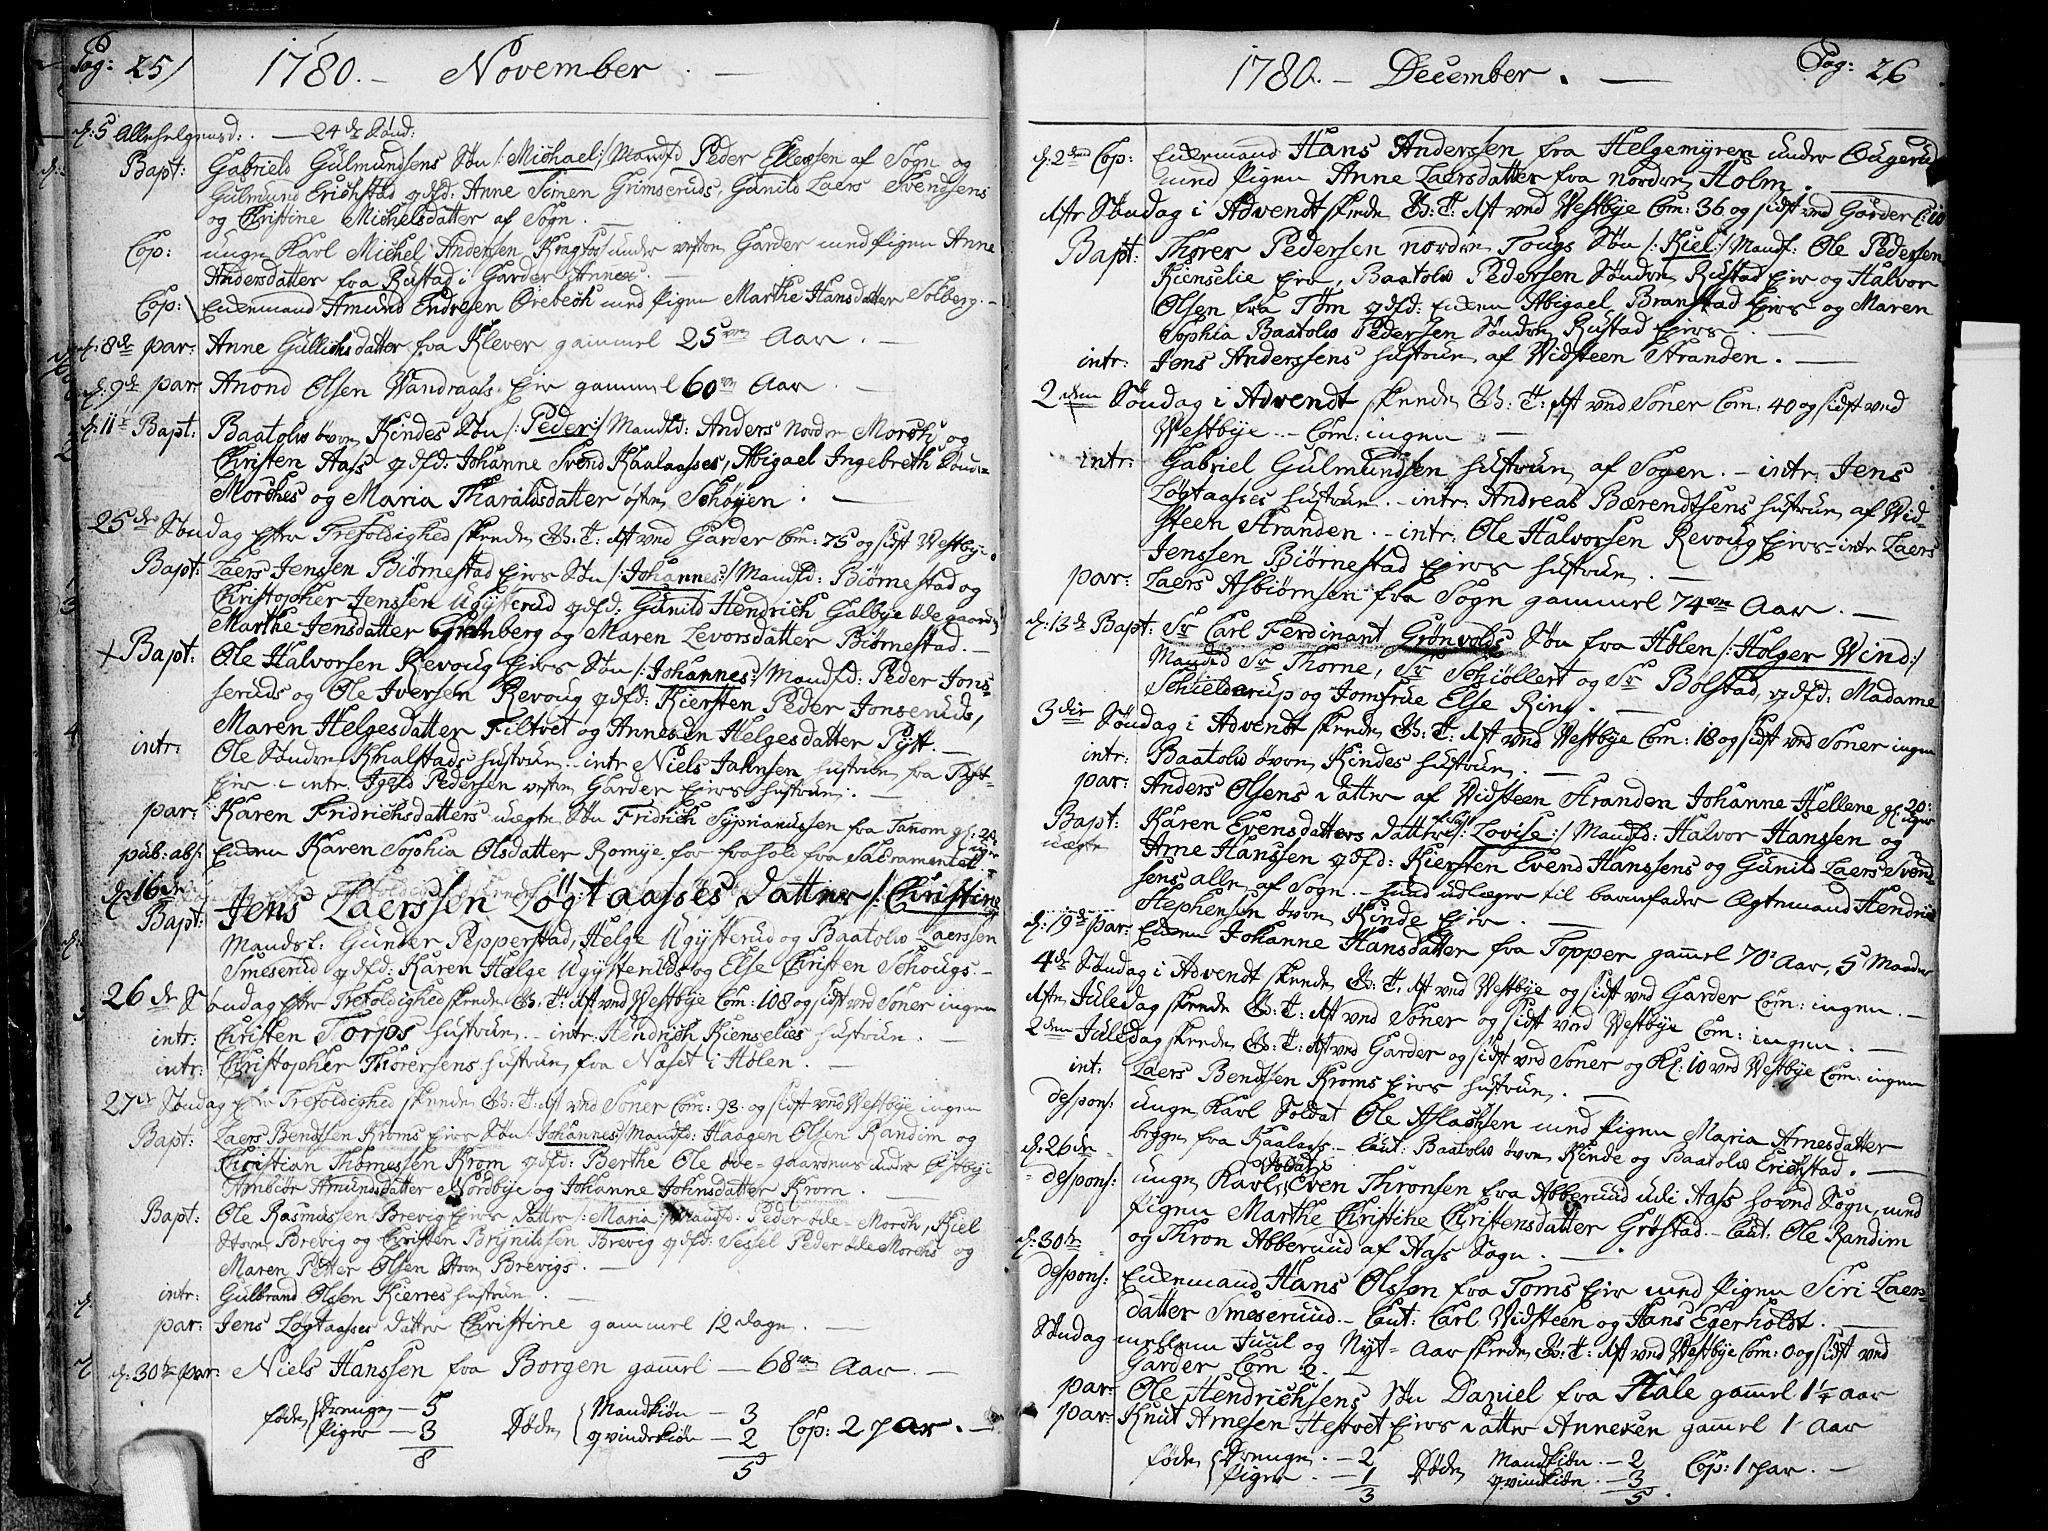 Pag: 25/
1780. – November. –
d: 5 Allehelgensd: – 24de Sønd:
Bapt: Gabriels Gulmundsens Søn /: Michael :/ Mandfd Peder Ellevsen af Sogn og
Gulmund Erichstad qdfd: Anne Simen Grimseruds, Gunild Laers Svendsens
og Christine Michelsdatter af Sogn. –
Cop: unge Karl Michel Andersen Kragfos under vestre Garder med Pigen Anne
Andersdatter fra Rustad i Garder Annex. –
Cop: Enkemand Amund Endresen Ørebech med Pigen Marthe Hansdatter Solberg. –
d: 8de par: Anne Gullichsdatter fra Klever gammel 25 Aar. –
d: 9de par: Anond Olsen Wandraals Eie gammel 60 Aar –
d: 11te Bapt: Baatolv øvre Kindes Søn /: Peder :/ Mandfd: Anders Nordre Morch, og
Christen Aass qdfd: Johanne Svend Kaalaasses, Abigael Ingebreth Sønd-
Morches og Maria Tharaldsdatter østre Schøyen. –
25de Søndag efter Trefoldighed skrede G: T: Aft ved Garder Com: 75 og sidst Westbye.
Bapt: Laers Jenssen Biørnestad Eies Søn /: Johannes :/ Mandfd: Biørnestad og
Christopher Jenssen Ugysterud qdfd: Gunild Hendrich Galbye ødegaarden
Marthe Jensdatter Grinberg og Maren Levorsdatter Biørnestad. –
Bapt: Ole Halvorsen Revoug Eies Søn /: Johannes :/ Mandfd: Peder Jons-
seruds og Ole Iversen Revoug qdfd: Kiersten Peder Jonseruds,
Maren Helgesdatter Filtvet og Anneken Helgesdatter Pyst. –
intr: Ole Søndre Knalstads hustrue – intr Niels Jahnsen hustrue fra Tyst-
Eie – intr. Igeld Pedersen vestre Garder Eies hustrue. –
par: Karen Fridrichsdatters uægte Søn Fridrich Syprianussen fra Tanom gl: 20 uger
pub: abs: Enken Karen Sophia Olsdatter Romye for forhold fra Sacramentet
d: 16de
Bapt: Jens Laerssen Løgtaasses datter /: Christine :/
Mandsf: Gunder Pepperstad, Helge Ugysterud og Baatolv Laerssen
Smeserud qdfd: Karen Helge Ugysteruds og Else Christen Schougs. –
26de Søndag efter Trefoldighed skrede G: T: Aft ved Westbye Com: 108 og sidst ved Soner ingen
intr: Christen Torps hustrue – intr: Hendrich Kienselies hustrue. –
intr: Christopher Thorersens hustrue fra Næset i Holen. –
27de Søndag efter Trefoldighed skrede G: T: Aft ved Soner Com: 93 og sidst ved Westbye ingen
Bapt: Laers Bendtsen Kroms Eies Søn /: Johannes :/ Mandfd: Haagen Olsen Randim og
Christian Thomessen Krom qdfd: Berthe Ole øde-gaardens under Østbye
Anbiør Amundsdatter Nordbye og Johanne Johnsdatter Krom. –
Bapt: Ole Rasmussen Brevig Eies datter /: Maria :/ Mandfd: Peder øde-Morch, Kiel
Store Brevig og Christen Brynilssen Brevig qdfd: Sessel Peder øde Morchs og
Maren Petter Olsen Store Brevigs. –
intr: Gulbrand Olsen Kierres hustrue. –
par: Jens Løgtaasses datter Christine gammel 12 dage. –
d: 30te par: Niels Hanssen fra Borgen gaml – 68 Aar –
føde { Drenge – 5 Døde { Mandkiøn – 3 Cop: 2 par. –
Piger – 3 qvindekiøn – 2
8 5
1780. – December. – Pag: 26
d: 2den Cop: Enkemand Hans Andersen fra Helgemyren under Ougerud
med Pigen Anne Laersdatter fra nordre Holm. –
1ste Søndag i Advendt skrede G: T: Aft ved Vestbye Com: 36 og sidst ved Garder C: 10
Bapt: Thorer Pedersen nordre Tougs Søn /: Kiel :/ Mandf: Ole Pedersen
Kienselie Eie, Baatolv Pedersen Søndre Rustad Eie og Halvor
Olsen fra Tøm qdfd: Enken Abigael Branstad Eies og Maren
Sophia Baatolv Pedersen Søndre Rustad Eies. –
intr: Jens Anderssens hustrue af Vidsteen Stranden. –
2den Søndag i Advendt skrede G: T: Aft ved Soner Com: 40 og sidst ved
Westbye – Com: ingen –
intr: Gabriel Gulmundsen hustrue af Sogen. – intr: Jens
Løgtaasses hustrue. – intr: Andreas Bærendtsens hustrue af Vid-
steen Stranden. – intr: Ole Halvorsen Revoug Eies – intr Laers
Jenssen Biørnestad Eies hustrue. –
par: Laers Asbiørnsen fra Sogn gammel 74 Aar. –
d: 13de Bapt: Sr Carl Ferdinant Grønvolds Søn fra Hølen /: Holger Wind :/
Mandfd Sr Thorne, Sr Schiøllert og Sr Bolstad, qdfd: Madame
Schielderup og Jomfrue Else Ring. –
3die Søndag i Advendt skrede G: T: Aft ved Vestbye Com: 18 og sidst ved Soner ingen
intr: Baatolv øvre Kindes hustrue. –
par: Anders Olsens datter af Vidsteen Stranden Johanne Hellene gl: 20 uger
Bapt: Karen Evensdatters datter /: Lovise :/ Mandfd: Halvor Hanssen og
uægte Arne Hanssen qdfd: Kiersten Evend Hanssens og Gunild Laers Svend-
sens alle af Sogn. – hun udlegger til barnefader Agtemand Hendrich
Stephensen øvre Kinde Eie. –
d: 19de par: Enken Johanne Hansdatter fra Topper gaml 70 Aar, 5 Maander
4de Søndag i Advendt skrede G: T: Aft ved Westbye og sidst ved Garder Com: ingen. –
1ste Juledag skrede G: T: Aft ved Soner og sidst ved Westbye Com: ingen. –
2den Juledag skrede G: T: Aft ved Garder og sidst ved Soner og Kl: 10 ved Westbye Com: ingen
int. Laers Bendtsen Kroms Eies hustrue. –
despons: unge Karl Soldat Ole Aslachsen med Pigen Maria Arnesdatter
d: 26de begge fra Kaalaas – Caut: Baatolv øvre Kinde og Baatolv Erichstad. –
despons: unge Karl Soldat Even Thronsen fra Abberuud udi Aass hoved Sogn, med
Pigen Marthe Christine Christensdatter Grøstad – Caut: Ole Randim
d: 30te og Thron Abberuud af Aass Sogn. –
despons: Enkemand Hans Olsson fra Toms Eie med Pigen Siri Laers-
datter Smeseruud. – Caut: Carl Vidsteen og Hans Egerholdt. –
Søndag mellem Juul og Nyt-Aar skrede G: T: Aft ved Westbye Com: 0 og sidst ved
Garder Com 2. –
par: Ole Hendrichsens Søn Daniel fra Hale gaml 1¼ aar
par: Knut Arnesen Hestvet Eies datter Anneken gaml 1 Aar
føde { Drenge – 2 Døde Mandkiøn – 2 Cop: 1 par. –
Piger – 1 qvindkiøn – 3
3 5.